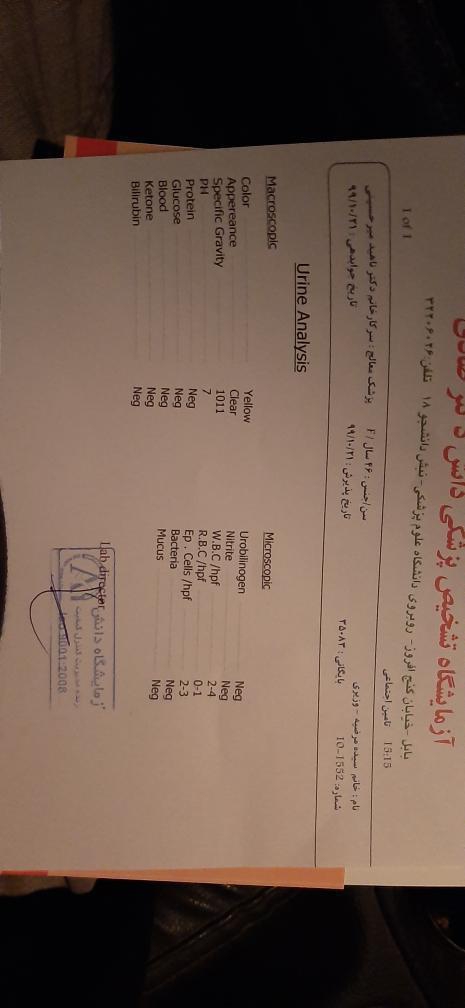 آزمایشگاه تشخیص پزشکی دانش دکتر
بابل -خیابان گنج افروز- روبروی دانشگاه علوم پزشکی- نبش دانشجو ۱۸ تلفن:۳۲۲۰۶۰۲۶
1 of 1
15:15 تامین اجتماعی
نام : خانم سیده مرضیه - وزیری
سن/جنس : ۴۶ سال / F
پزشک معالج : سرکار خانم دکتر ناهید میرحسینی
شماره: 10-1552
بایگانی : ۳۵۰۸۳
تاریخ پذیرش : ۹۹/۱۰/۲۱
تاریخ جوابدهی : ۹۹/۱۰/۲۱
Urine Analysis
Macroscopic
Color Yellow
Appereance Clear
Specific Gravity 1011
PH 7
Protein Neg
Glucose Neg
Blood Neg
Ketone Neg
Bilirubin Neg
Microscopic
Urobilinogen Neg
Nitrite Neg
W.B.C /hpf 2-4
R.B.C /hpf 0-1
Ep . Cells /hpf 2-3
Bacteria Neg
Mucus Neg
Lab director
آزمایشگاه دانش
ISO 9001:2008